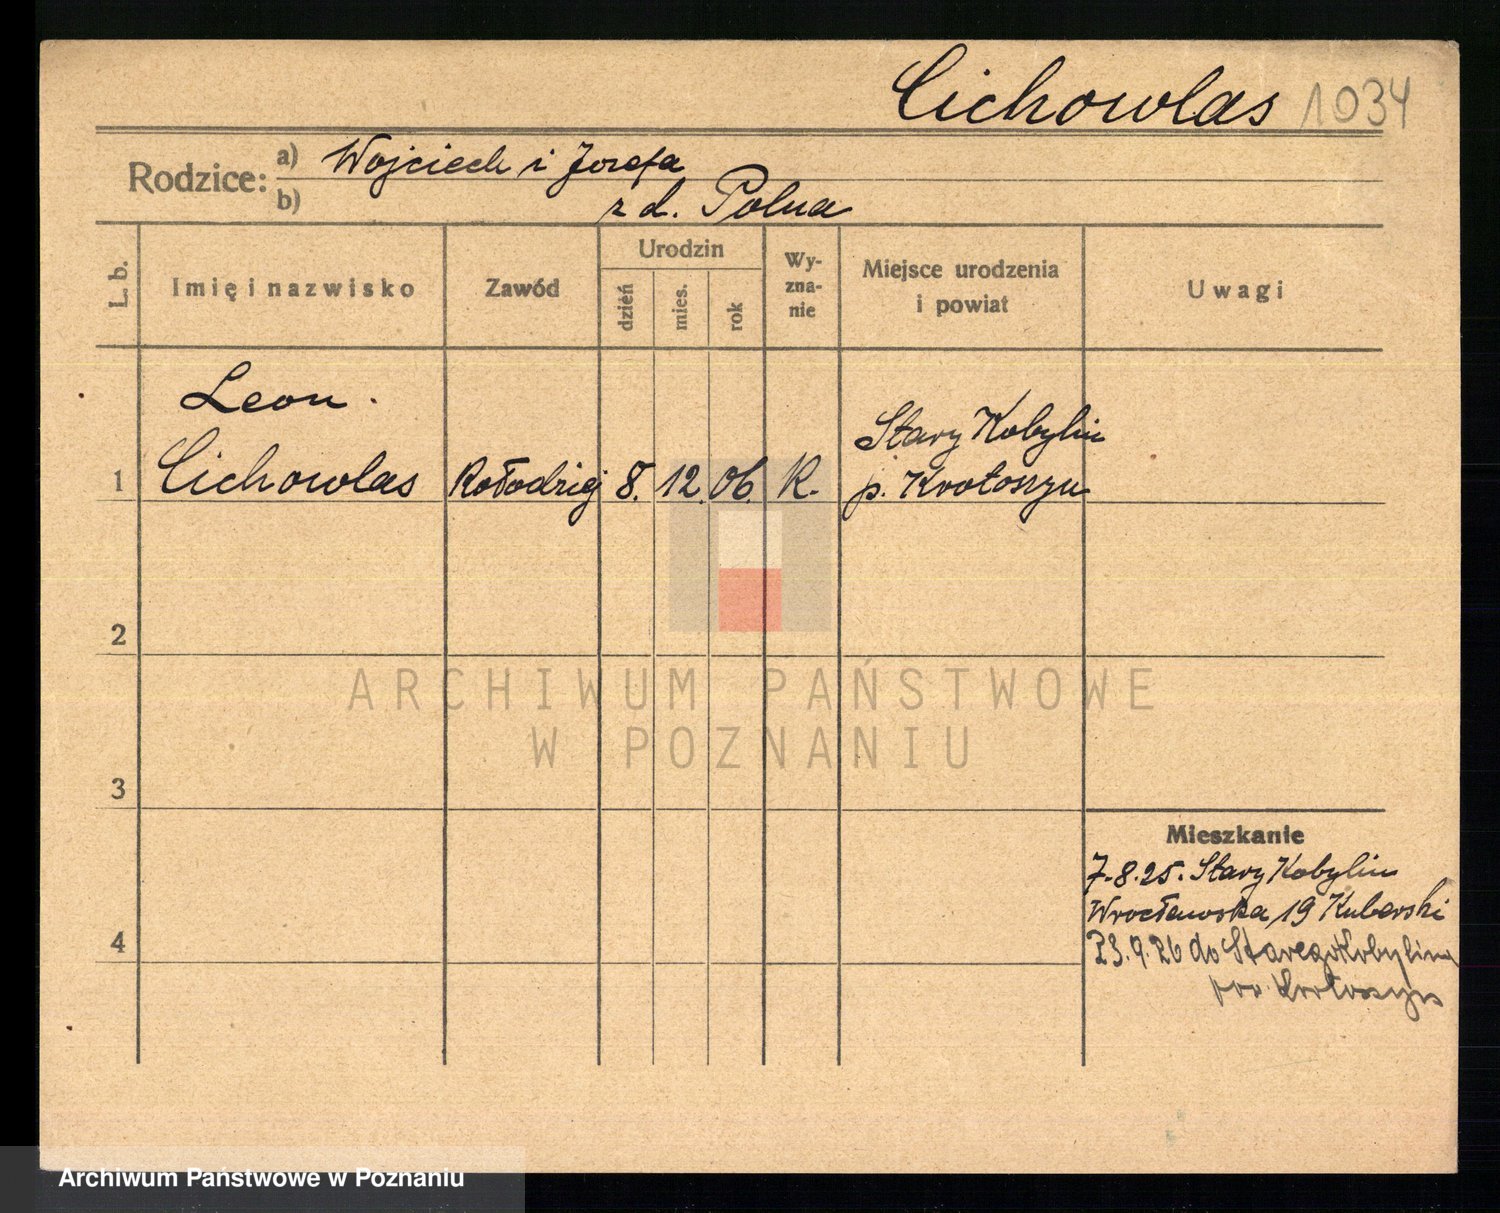 Cichowlas 1034
Rodzice: a) Wojciech i Jozefa
b) z d. Polna
L. b. Imię i nazwisko Zawód Urodzin dzień mies. rok Wy-zna-nie Miejsce urodzenia i powiat Uwagi
Leon
1 Cichowlas Kołodziej 8. 12. 06. K. Stary Kobylin
p. Krotoszyn
2
ARCHIWUM PAŃSTWOWE
W POZNANIU
3
Mieszkanie
7.8.25. Stary Kobylin
Wrocławska 19 Kuberski
4
23.9.26 do Starego Kobylina
pow. Krotoszyn
Archiwum Państwowe w Poznaniu